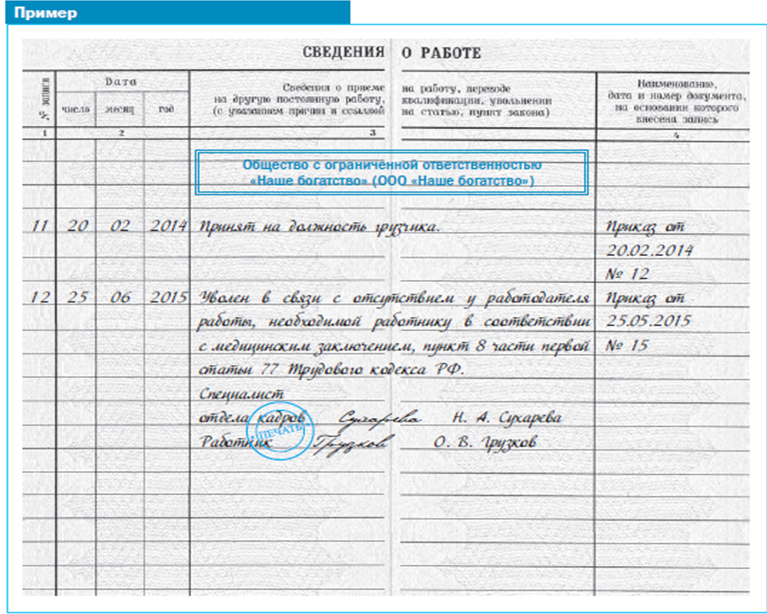 Пример
СВЕДЕНИЯ О РАБОТЕ
№ записи
Дата
число месяц год
Сведения о приеме на работу, переводе
на другую постоянную работу, квалификации, увольнении
(с указанием причин и ссылкой на статью, пункт закона)
Наименование,
дата и номер документа,
на основании которого
внесена запись
1 2 3 4
Общество с ограниченной ответственностью
«Наше богатство» (ООО «Наше богатство»)
11 20 02 2014 Принят на должность грузчика. Приказ от
20.02.2014
№ 12
12 25 06 2015 Уволен в связи с отсутствием у работодателя Приказ от
работы, необходимой работнику в соответствии 25.05.2015
с медицинским заключением, пункт 8 части первой № 15
статьи 77 Трудового кодекса РФ.
Специалист
отдела кадров Сухарева Н. А. Сухарева
ПЕЧАТЬ
Работник Грузков О. В. Грузков